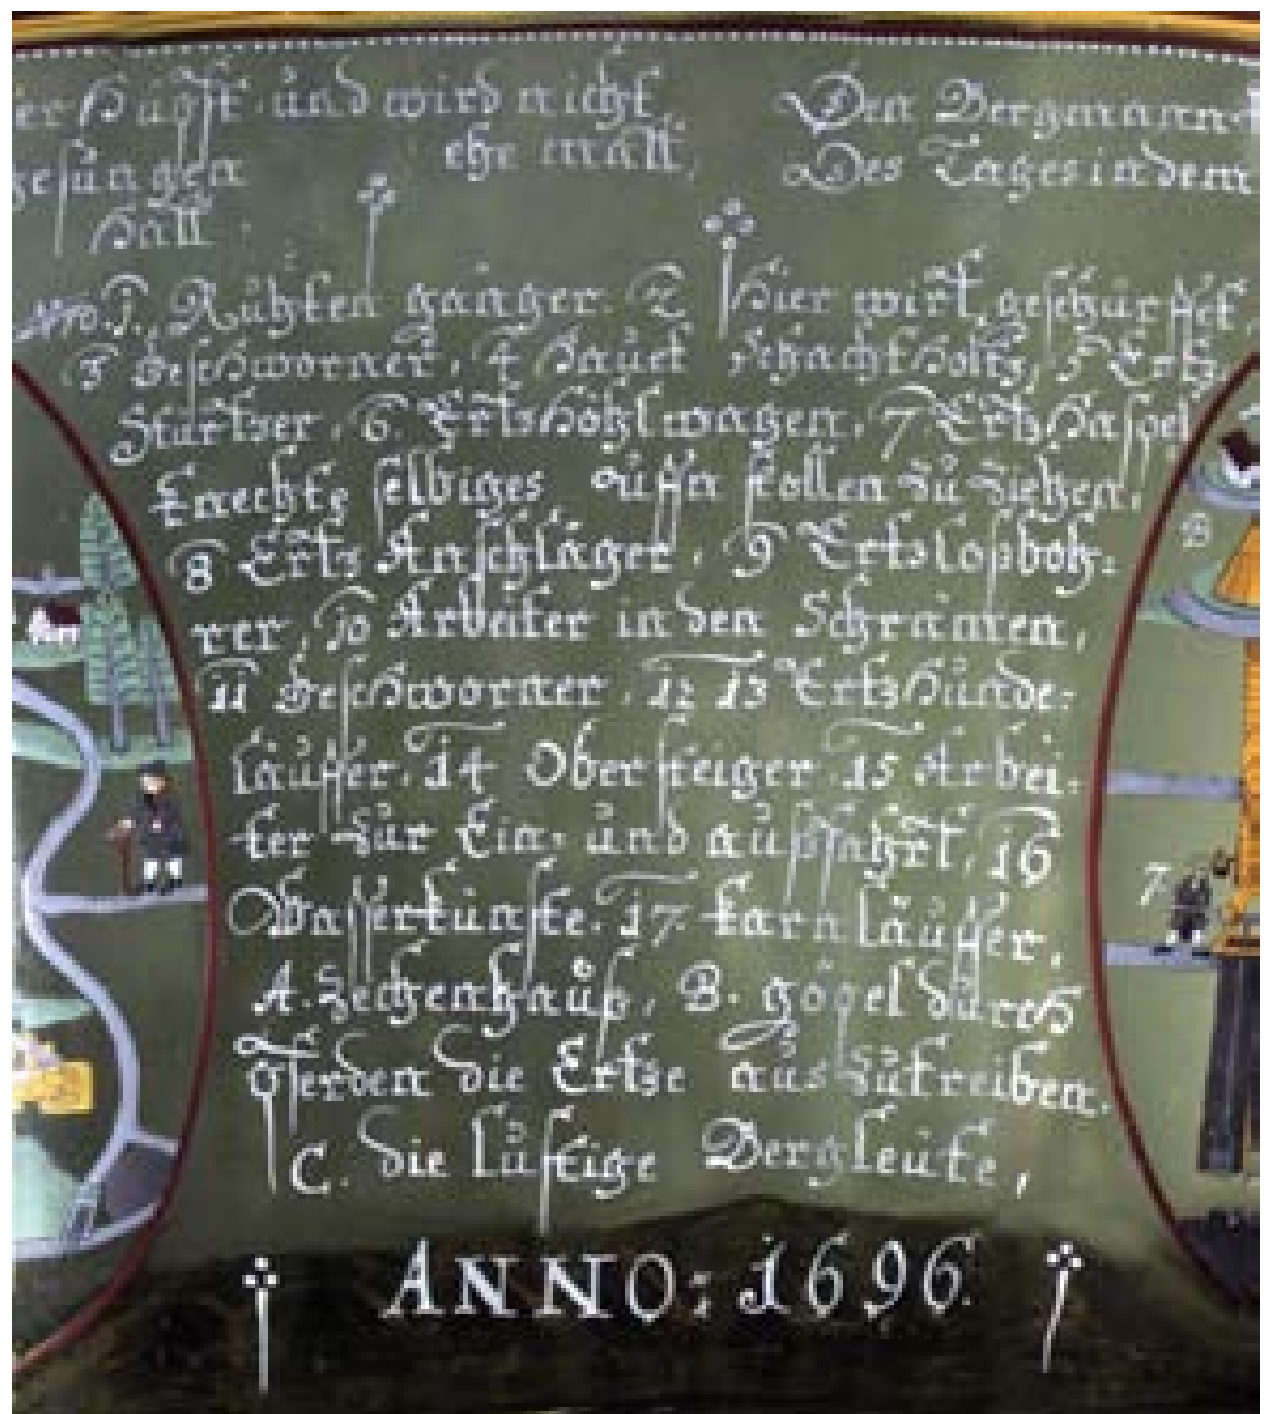 er Hüpft und wird nicht
ehe matt,
gesüngen
hatt.
Den Bergmann
Des Tages in dem
No. 1. Rühten gänger. 2 Hier wirt geschürffet,
3 Geschworner, 4 Haüet Schacht Holtz, 5 Ertz
Stürtzer, 6. Ertz Höhl wagen, 7. Ertz Haspel
knechte selbiges aüssn stollen zü ziehen,
8 Ertz Anschläger, 9 Ertz losboh-
rer, 10 Arbeiter in den Schrämen,
11 Geschworner, 12 13 Ertz Hünde-
läüffer. 14 Obersteiger. 15 Arbei-
ter zür Ein- ünd aüsffahrt, 16
Wasserkünste. 17. karn läüffer,
A. Zechenhaüß, B. gögel dürch
Pferden die Ertze aüs zü treiben.
C. die lüstige Bergleüte,
ANNO: 1696.
B
7